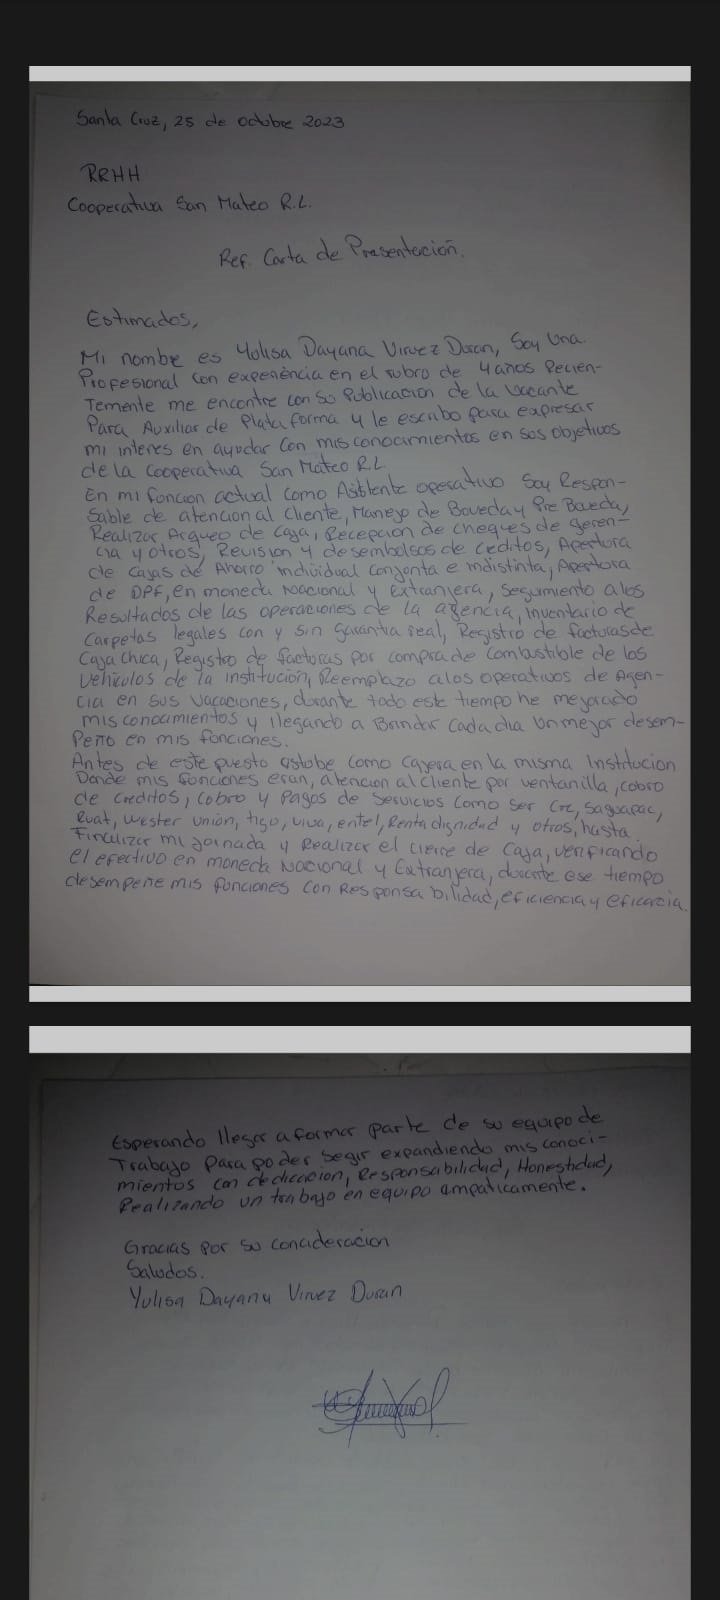 Santa Cruz, 25 de octubre 2023
RRHH
Cooperativa San Mateo R.L.
Ref. Carta de Presentación.
Estimados,
Mi nombre es Yulisa Dayana Virvez Duran, Soy Una
Profesional con experiencia en el rubro de 4 años Recien-
Temente me encontre con su Publicacion de la Vacante
Para Auxiliar de Plata forma y le escribo para expresar
mi interes en ayudar con mis conocimientos en sus objetivos
de la Cooperativa San Mateo R.L
En mi funcion actual como Asistente operativo Soy Respon-
sable de atencion al Cliente, Manejo de Boveda y Pre Boveda,
Realizar Arqueo de Caja, Recepcion de cheques de geren-
cia y otros, Revision y desembolsos de creditos, Apertura
de Cajas de Ahorro individual conjonta e indistinta, Apertura
de DPF, en moneda Nacional y extranjera, Seguimiento a los
Resultados de las operaciones de la agencia, Inventario de
Carpetas legales con y sin garantia real, Registro de facturas de
Caja Chica, Registro de facturas por compra de Combustible de los
Vehiculos de la institución, Reemplazo a los operativos de Agen-
cia en sus Vacaciones, durante todo este tiempo he mejorado
mis conocimientos y llegando a Brindar Cada dia Un mejor desem-
Peño en mis funciones.
Antes de este puesto estube como Cajera en la misma Institucion
Donde mis funciones eran, atencion al cliente por ventanilla, cobro
de creditos, Cobro y Pagos de Servicios como ser Cre, Saguapac,
Ruat, Wester Union, tigo, viva, entel, Renta dignidad y otros, hasta
Finalizar mi Jornada y Realizar el cierre de Caja, verificando
el efectivo en moneda Nacional y Extranjera, durante ese tiempo
desempeñe mis funciones con Responsabilidad, eficiencia y eficacia.
Esperando llegar a formar parte de su equipo de
Trabajo Para poder segir expandiendo mis conoci-
mientos con dediccion, Responsabilidad, Honestidad,
Realizando un trabajo en equipo ampaticamente.
Gracias por su concideracion
Saludos.
Yulisa Dayana Virvez Duran